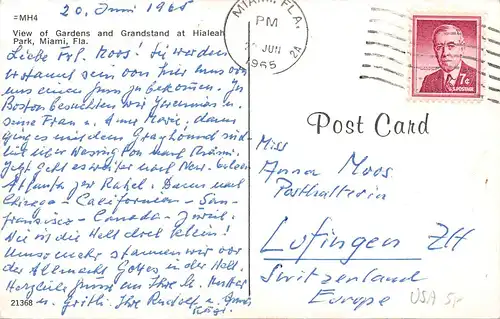 20. Juni 1965
=MH4
View of Gardens and Grandstand at Hialeah
Park, Miami, Fla.
Liebe Frl. Moos! Sie werden
erstaunt sein von hier aus von
uns einen Gruss zu bekommen. In
Boston besuchten wir
seine Frau u. Anne Marie, dann
ging es mit dem Greyhound
über Washington nach Miami.
Jetzt geht es weiter nach New-
Atlanta zu Rahel. Dann nach
Chicago - Californien - San-
franzisco - Canada - zurück.
Wie ist die Welt doch klein!
Umso mehr staunen wir vor
der Allmacht Gottes in der Welt.
Herzliche Grüsse an Ihre lb. Mutter
u. Gritli. Ihre Rudolf u.
21368
MIAMI, FLA.
PM
JUN
1965
2A
7¢
U.S. POSTAGE
Post Card
Miss
Anna Moos
Posthalterin
Lufingen ZH
Switzerland
Europe
USA